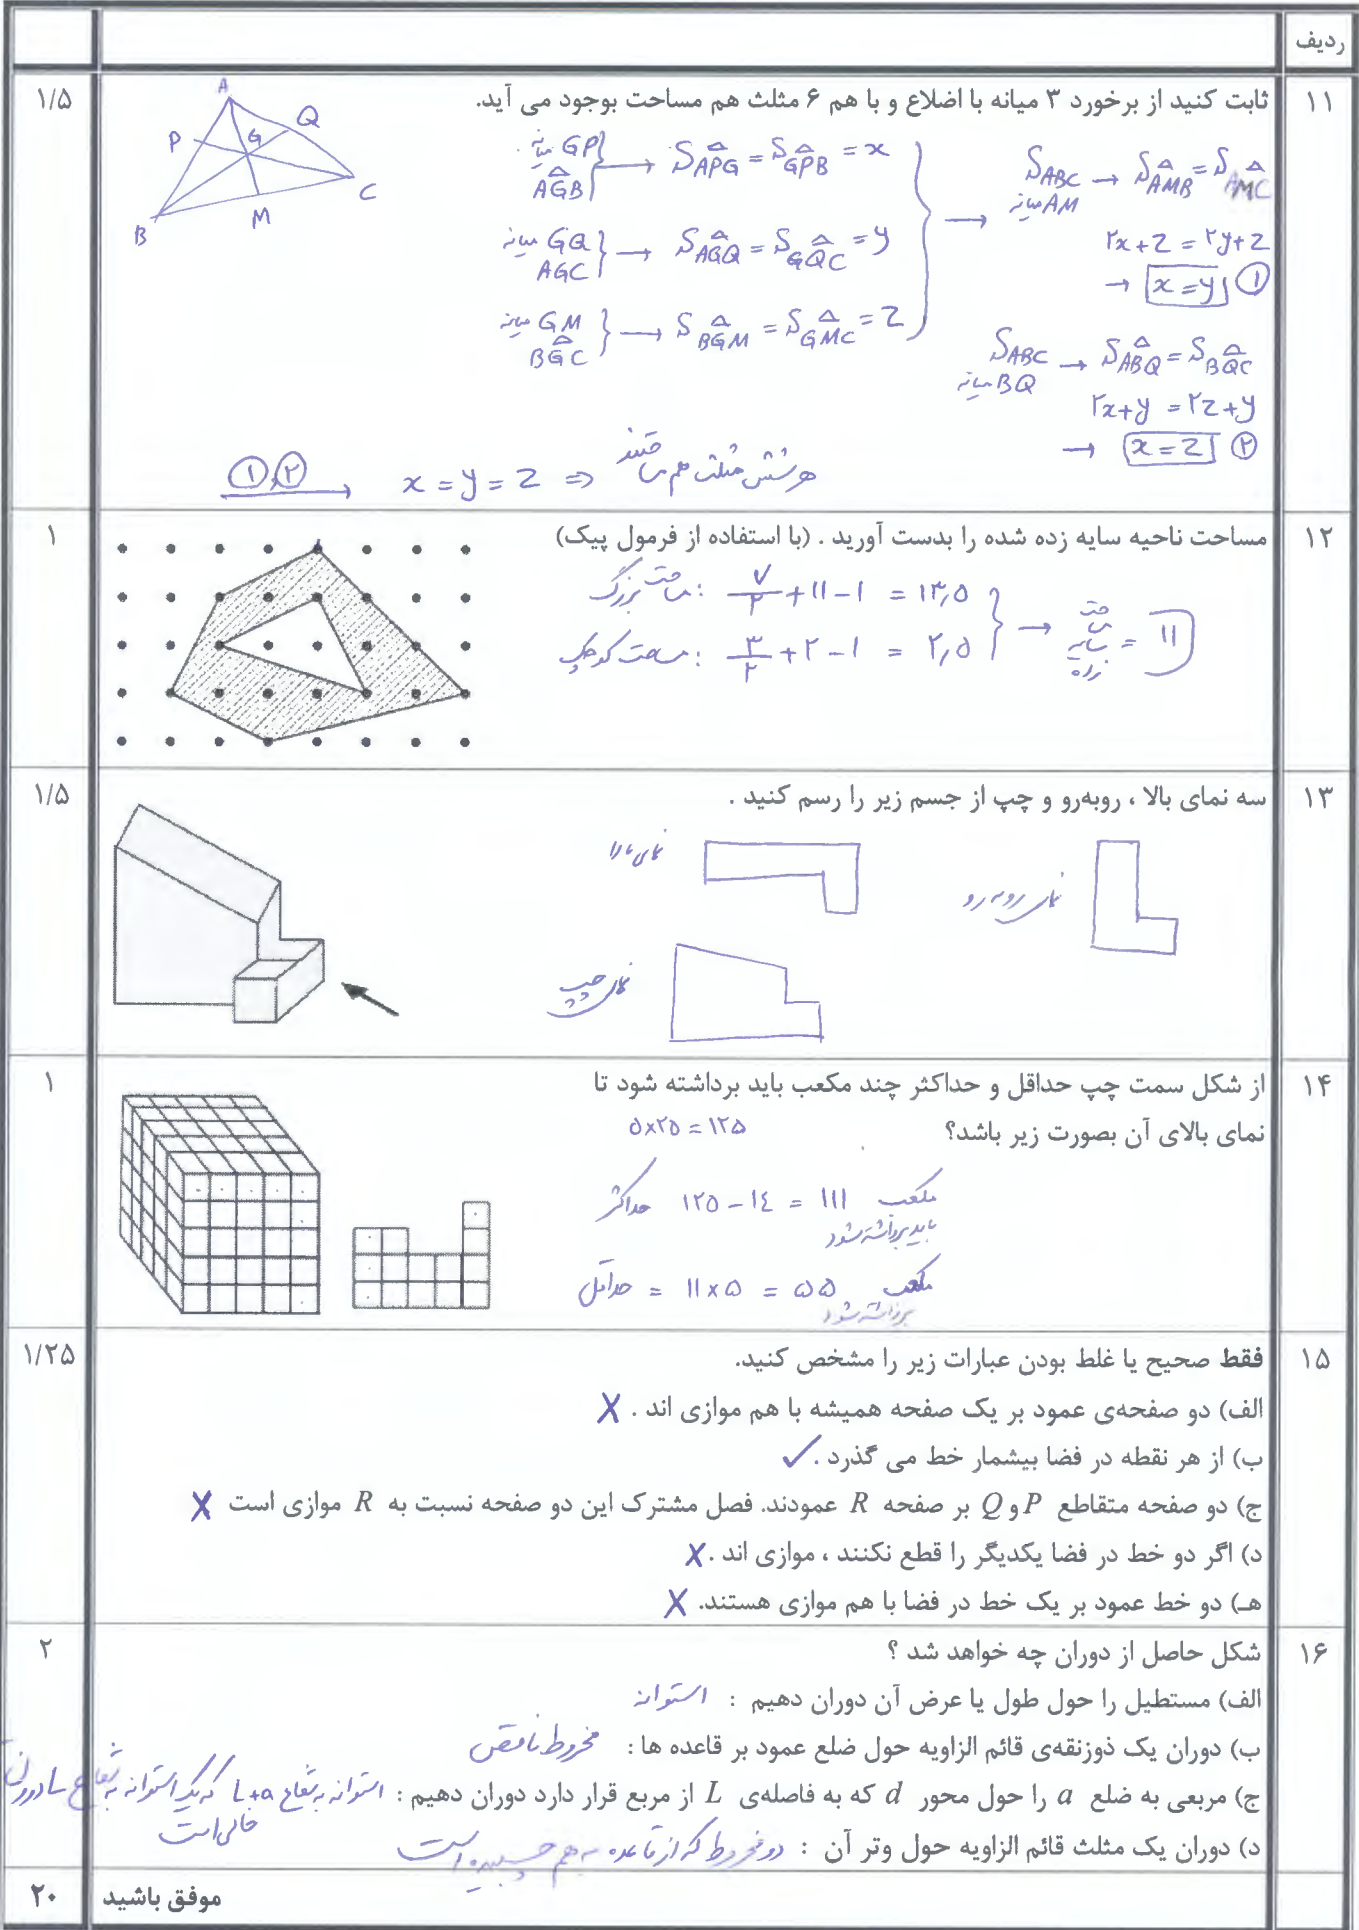 ردیف
۱۱
ثابت کنید از برخورد ۳ میانه با اضلاع و با هم ۶ مثلث هم مساحت بوجود می آید.
۱/۵
A
P
G
Q
B
M
C
میانه GP
AGB
→ S APG = S GPB = x
میانه GQ
AGC
→ S AGQ = S GQC = y
میانه GM
BGC
→ S BGM = S GMC = z
→
S ABC → S AMB = S AMC
میانه AM
۲x + z = ۲y + z
→ x = y ①
S ABC → S ABQ = S BQC
میانه BQ
۲x + y = ۲z + y
→ x = z ②
①,② → x = y = z ⇒ هر شش مثلث هم مساحتند
۱۲
مساحت ناحیه سایه زده شده را بدست آورید . (با استفاده از فرمول پیک)
۱
مساحت بزرگ : ۷/۲ + ۱۱ - ۱ = ۱۳,۵
مساحت کوچک : ۳/۲ + ۲ - ۱ = ۲,۵
→ مساحت سایه زده = ۱۱
۱۳
سه نمای بالا ، روبه‌رو و چپ از جسم زیر را رسم کنید .
۱/۵
نمای بالا
نمای روبه رو
نمای چپ
۱۴
از شکل سمت چپ حداقل و حداکثر چند مکعب باید برداشته شود تا
۱
نمای بالای آن بصورت زیر باشد؟
۵×۲۵ = ۱۲۵
حداکثر ۱۲۵ - ۱۴ = ۱۱۱ مکعب
باید برداشته شود
حداقل = ۱۱ × ۵ = ۵۵ مکعب
برداشته شود
۱۵
فقط صحیح یا غلط بودن عبارات زیر را مشخص کنید.
۱/۲۵
الف) دو صفحه‌ی عمود بر یک صفحه همیشه با هم موازی اند . ✗
ب) از هر نقطه در فضا بیشمار خط می گذرد . ✓
ج) دو صفحه متقاطع P و Q بر صفحه R عمودند. فصل مشترک این دو صفحه نسبت به R موازی است ✗
د) اگر دو خط در فضا یکدیگر را قطع نکنند ، موازی اند . ✗
هـ) دو خط عمود بر یک خط در فضا با هم موازی هستند. ✗
۱۶
شکل حاصل از دوران چه خواهد شد ؟
۲
الف) مستطیل را حول طول یا عرض آن دوران دهیم : استوانه
ب) دوران یک ذوزنقه‌ی قائم الزاویه حول ضلع عمود بر قاعده ها : مخروط ناقص
ج) مربعی به ضلع a را حول محور d که به فاصله‌ی L از مربع قرار دارد دوران دهیم : استوانه به شعاع L+a که یک استوانه به شعاع L از درون آن
خالی است
د) دوران یک مثلث قائم الزاویه حول وتر آن : دو مخروط که از قاعده به هم چسبیده است
موفق باشید
۲۰